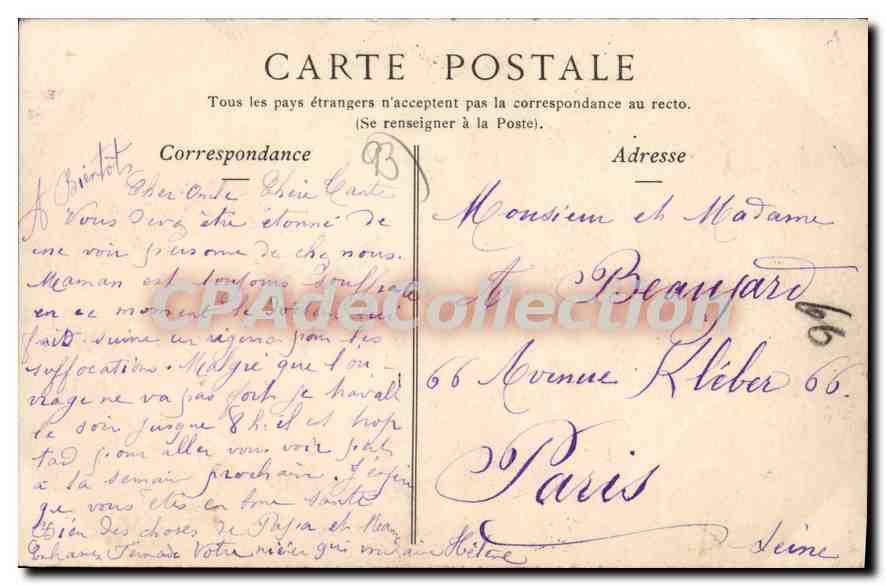 CARTE POSTALE
Tous les pays étrangers n'acceptent pas la correspondance au recto.
(Se renseigner à la Poste).
Correspondance
93
A Bientôt
Cher Oncle Chère Tante
Vous devez être étonné de
ne voir personne de chez nous.
Maman est toujours souffrante
en ce moment le docteur
fait suivre un régime pour les
suffocations. Malgré que l'ou-
vrage ne va pas fort je travaille
le soir jusque 8 h. il est trop
tad pour aller vous voir
a la semain prochain. J'espère
que vous êtes en bone santé
Bien des choses de Papa et Maman
Embrassez Fernande Votre nièce qui Hélène
Adresse
Monsieur et Madame
A Beaujard
66 Avenue Kléber 66.
Paris
Seine
99
CPAdeCollection